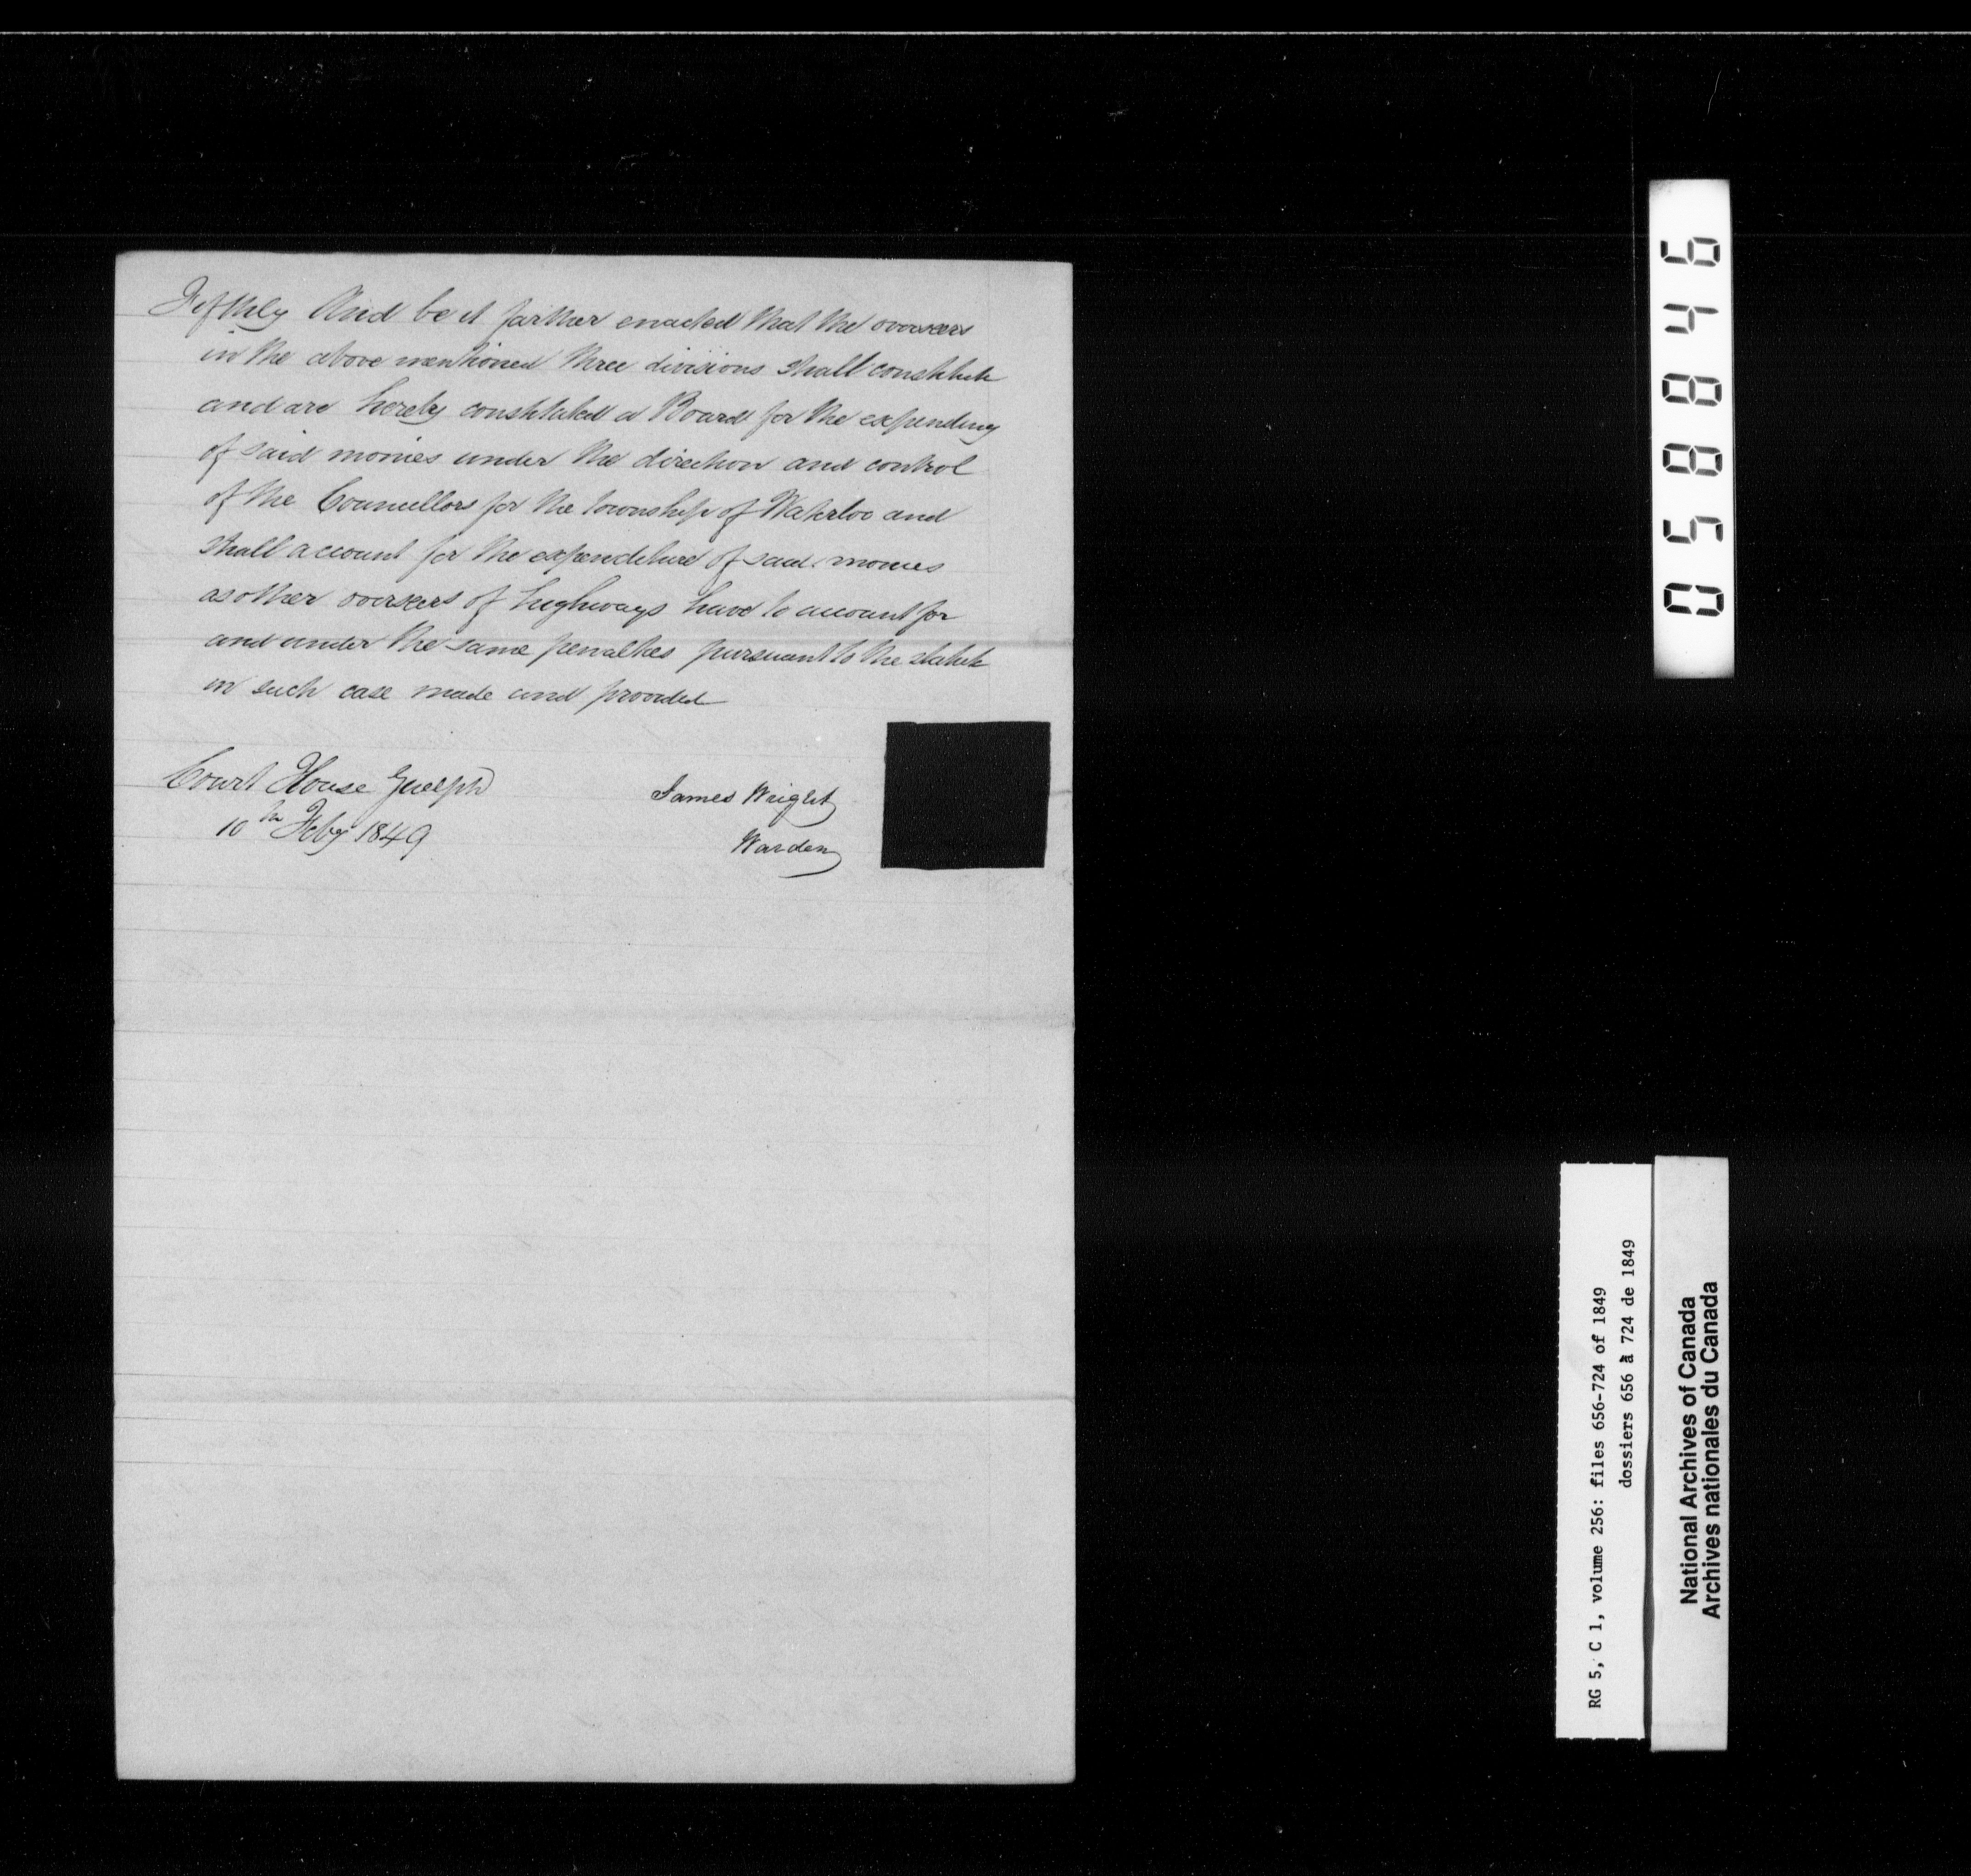 Fifthly And be it farther enacted that the overseers
in the above mentioned three divisions shall constitute
and are hereby constituted a Board for the expending
of said monies under the direction and control
of the Councillors for the township of Waterloo and
shall account for the expenditure of said monies
as other overseers of highways have to account for
and under the same penalties pursuant to the statute
in such case made and provided
Court House Guelph
10th Feby 1849
James Wright
Warden
058846
RG 5, C 1, volume 256: files 656-724 of 1849
dossiers 656 à 724 de 1849
National Archives of Canada
Archives nationales du Canada